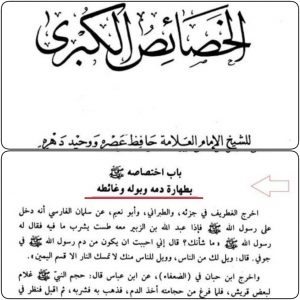 الخصائص الكبرى
للشيخ الإمام العلامة حافظ عصره ووحيد دهره
باب اختصاصه ﷺ
بطهارة دمه وبوله وغائطه
اخرج الغطريف في جزئه، والطبراني، وأبو نعيم، عن سلمان الفارسي أنه دخل
على رسول الله ﷺ فإذا عبد الله بن الزبير معه طست يشرب ما فيه فقال له
رسول الله ﷺ « ما شأنك؟ قال إني أحببت ان يكون من دم رسول الله ﷺ في
جوفي. قال: ويل لك من الناس، وويل للناس منك لا تمسك النار الا قسم اليمين ».
واخرج ابن حبان في (الضعفاء)، عن ابن عباس قال: حجم النبي ﷺ غلام
لبعض قريش، فلما فرغ من حجامته أخذ الدم، فذهب به فشربه، ثم اقبل فنظر في